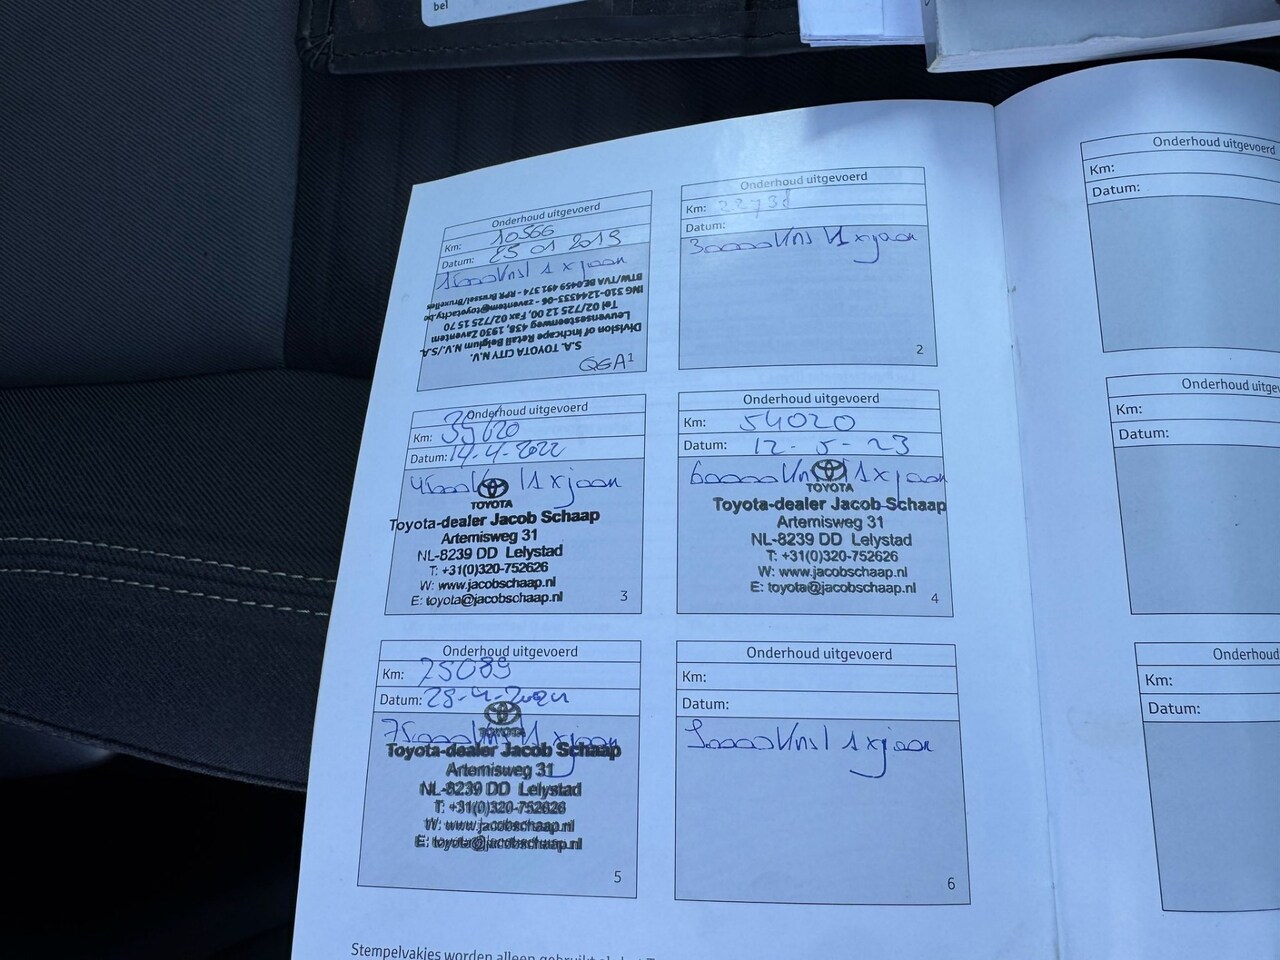 bel
Onderhoud uitgevoerd
Km: 10566
Datum: 25 01 2019
15000Km/ 1 x jaar
S.A. TOYOTA CITY N.V.
Division of Inchcape Retail Belgium N.V./S.A.
Leuvensesteenweg 438, 1930 Zaventem
Tel 02/725 12 00, Fax 02/725 15 70
ING 310-1244533-06 - zaventem@toyotacity.be
BTW/TVA BE.0459 491 374 - RPR Brussel/Bruxelles
Onderhoud uitgevoerd
Km:
Datum:
30000Km/ 1 x jaar
2
Onderhoud uitgevoerd
Km:
Datum: 14-4-2022
45000Km/ 1 x jaar
TOYOTA
Toyota-dealer Jacob Schaap
Artemisweg 31
NL-8239 DD Lelystad
T: +31(0)320-752626
W: www.jacobschaap.nl
E: toyota@jacobschaap.nl
3
Onderhoud uitgevoerd
Km: 54020
Datum: 12-5-23
60000Km/ 1 x jaar
TOYOTA
Toyota-dealer Jacob Schaap
Artemisweg 31
NL-8239 DD Lelystad
T: +31(0)320-752626
W: www.jacobschaap.nl
E: toyota@jacobschaap.nl
4
Onderhoud uitgevoerd
Km: 75089
Datum: 25-4-2024
75000Km/ 1 x jaar
TOYOTA
Toyota-dealer Jacob Schaap
Artemisweg 31
NL-8239 DD Lelystad
T: +31(0)320-752626
W: www.jacobschaap.nl
E: toyota@jacobschaap.nl
5
Onderhoud uitgevoerd
Km:
Datum:
90000Km/ 1 x jaar
6
Stempelvakjes worden alleen gebruikt
Onderhoud uitgevoerd
Km:
Datum:
Onderhoud uitge
Km:
Datum:
Onderhoud
Km:
Datum: